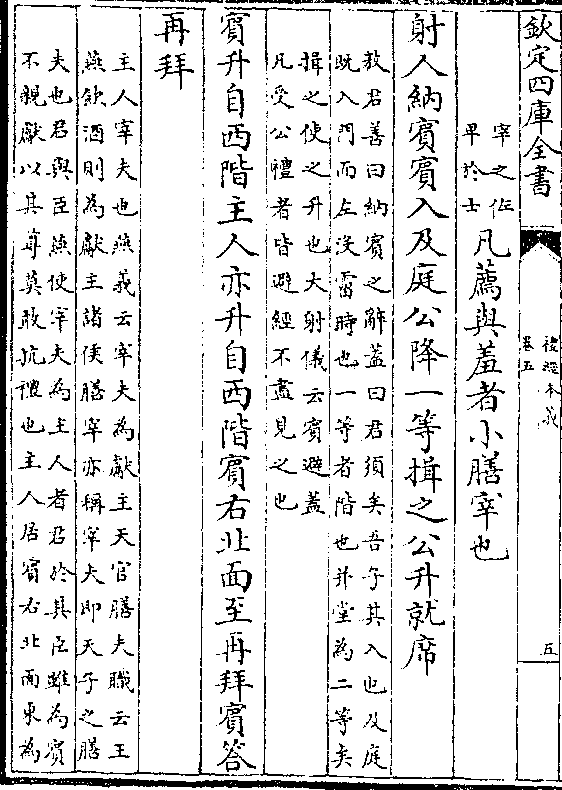 欽定四庫全書
禮經本義
卷五
五
宰之佐
卑於士
凡薦與羞者小膳宰也
射人納賔賔入及庭公降一等揖之公升就席
敖君善曰納賔之辭蓋曰君須矣吾子其入也及庭
既入門而左沒霤時也一等者階也并堂為二等矣
揖之使之升也大射儀云賔避蓋
凡受公禮者皆避經不盡見之也
賔升自西階主人亦升自西階賔右北面至再拜賔答
再拜
主人宰夫也燕義云宰夫為獻主天官膳夫職云王
燕飲酒則為獻主諸侯膳宰亦稱宰夫即天子之膳
夫也君與臣燕使宰夫為主人者君於其臣雖為賔
不親獻以其尊莫敢抗禮也主人居賔右北面東為